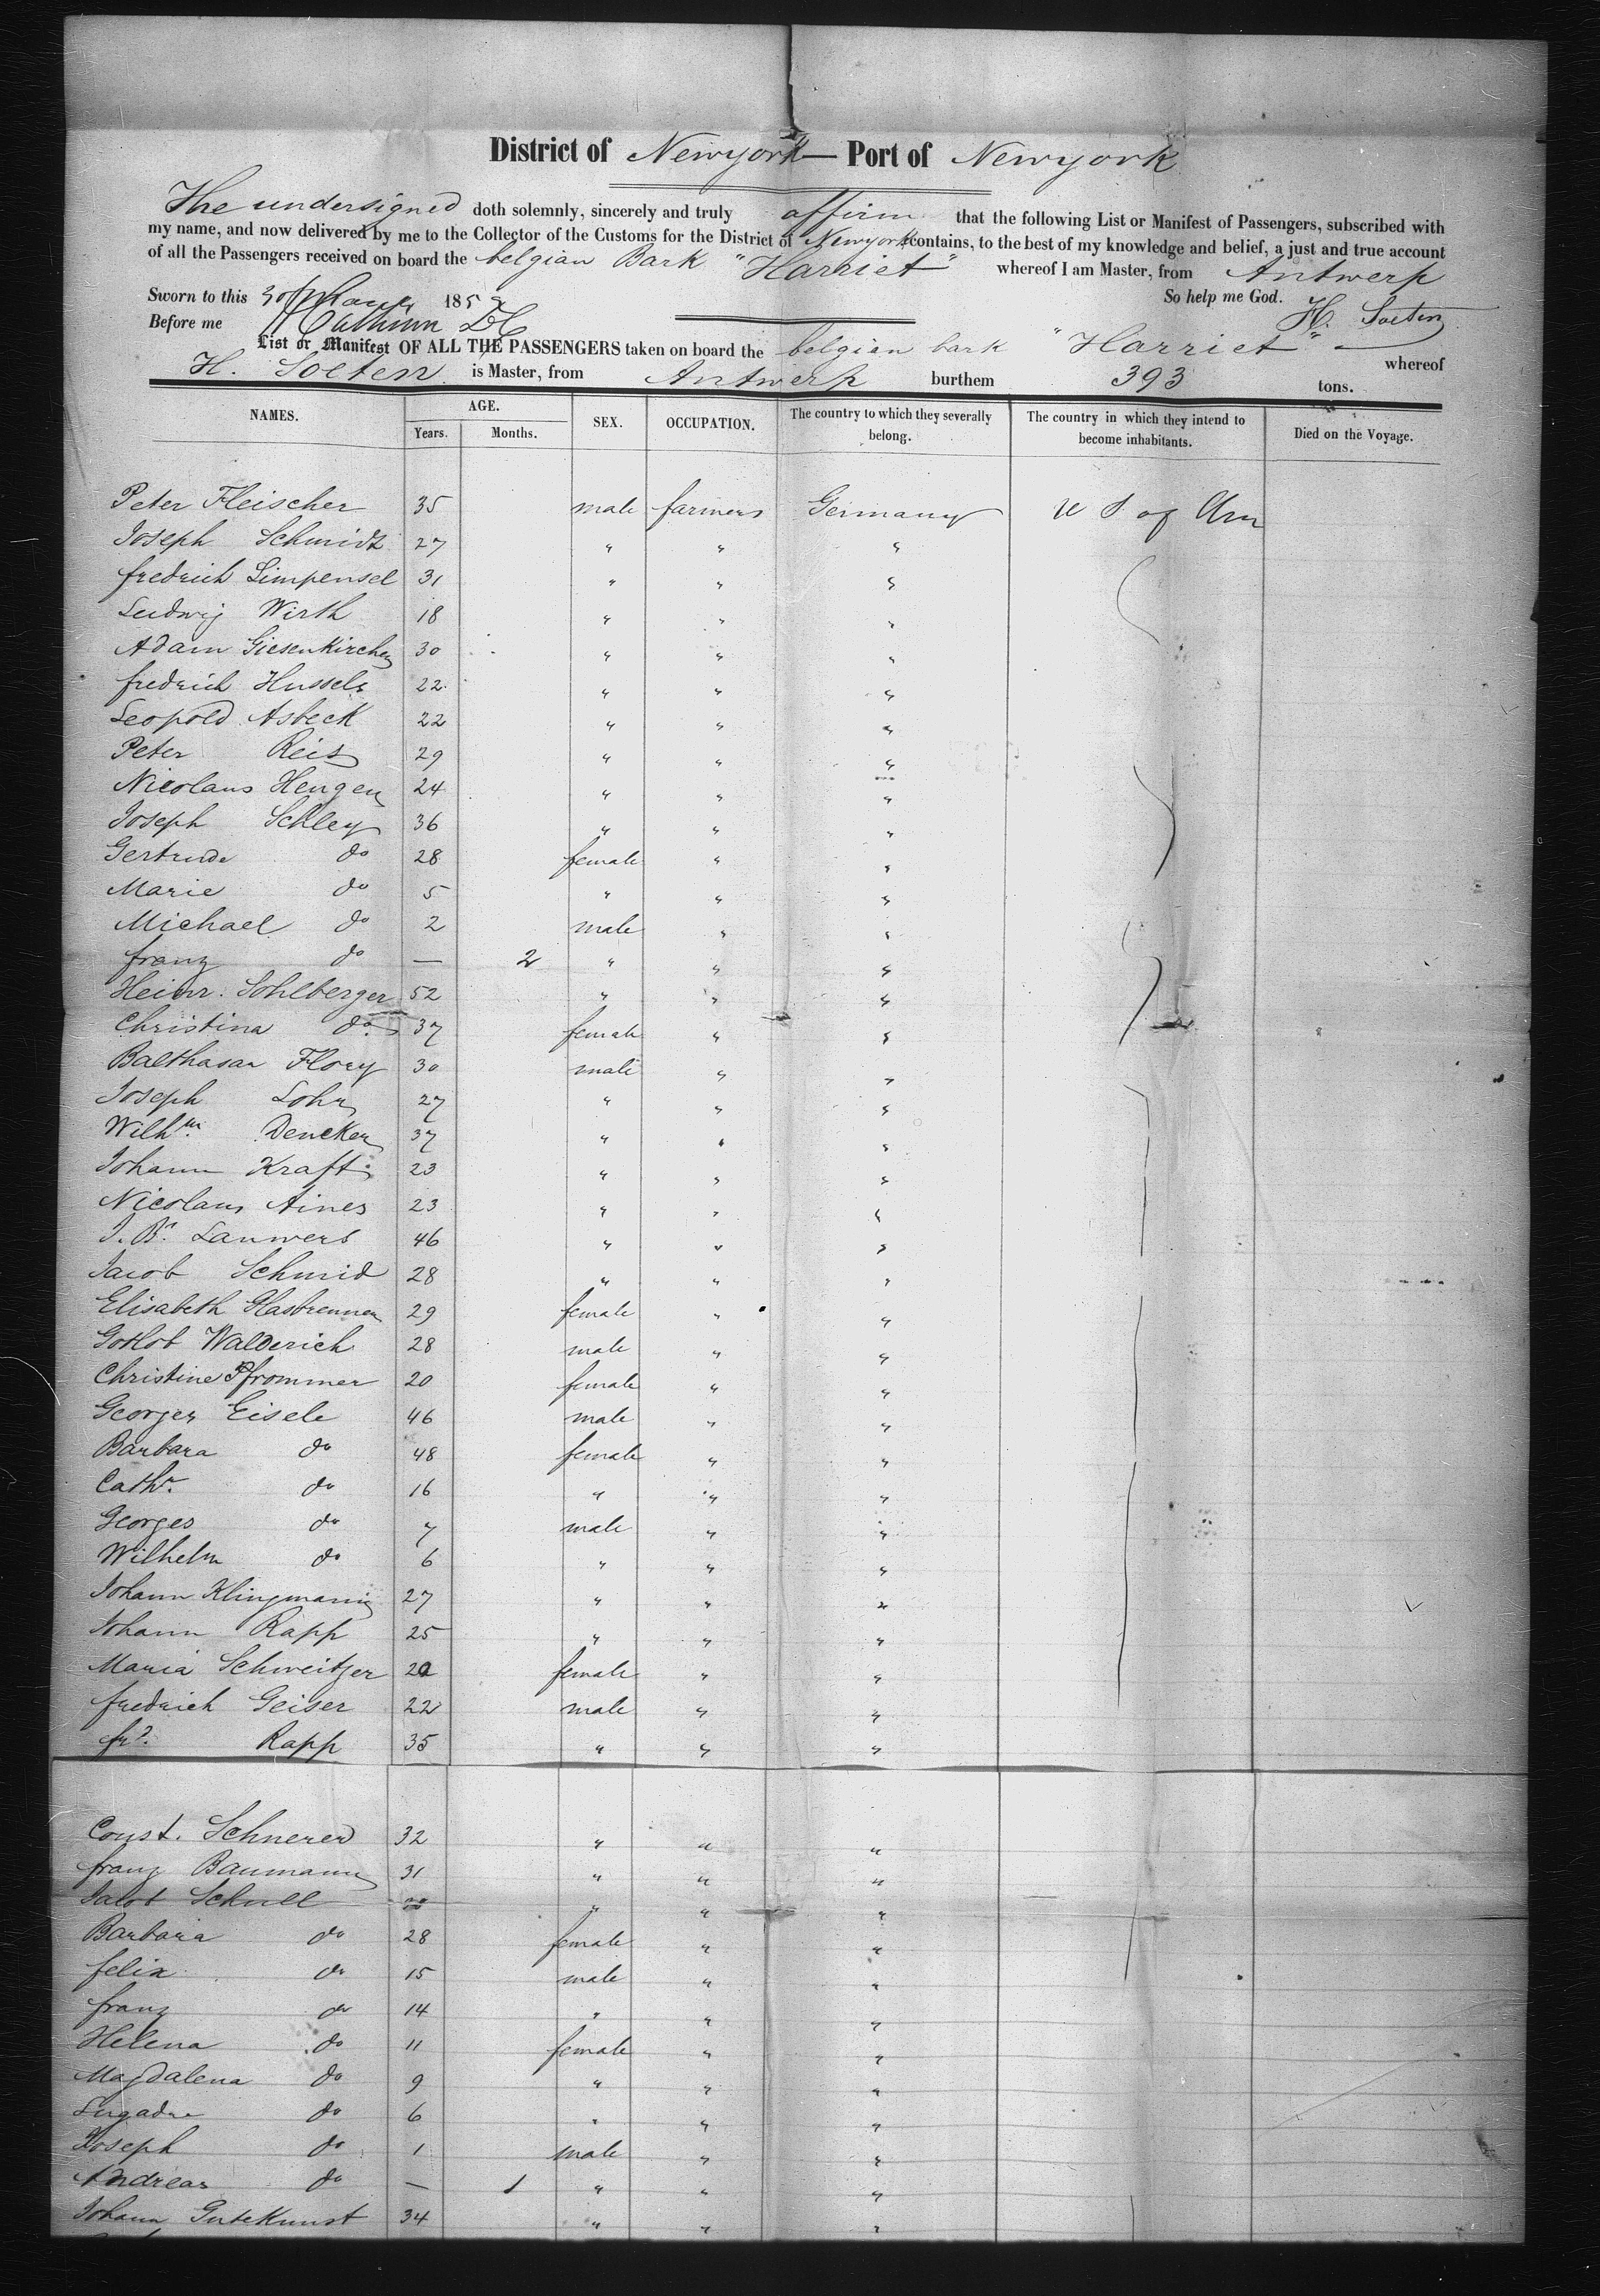 District of Newyork Port of Newyork
The undersigned doth solemnly, sincerely and truly affirm that the following List or Manifest of Passengers, subscribed with
my name, and now delivered by me to the Collector of the Customs for the District of Newyork contains, to the best of my knowledge and belief, a just and true account
of all the Passengers received on board the belgian Bark "Harriet" whereof I am Master, from Antwerp
Sworn to this 185 So help me God.
Before me H. Soeten
List or Manifest OF ALL THE PASSENGERS taken on board the belgian bark "Harriet" whereof
H. Soeten is Master, from Antwerp burthem 393 tons.
NAMES. AGE. SEX. OCCUPATION. The country to which they severally belong. The country in which they intend to become inhabitants. Died on the Voyage.
Years. Months.
Peter Fleischer 35 male farmers Germany U S of Am
Joseph Schmidt 27 " " "
fredrich Limpensel 31 " " "
Ludwig Wirth 18 " " "
Adam Giesenkirchen 30 " " "
fredrich Hussels 22 " " "
Leopold Asbeck 22 " " "
Peter Reis 29 " " "
Nicolaus Hengen 24 " " "
Joseph Schley 36 " " "
Gertrude do 28 female " "
Marie do 5 " " "
Michael do 2 male " "
franz do — 2 " " "
Heinr. Sohlberger 52 " " "
Christina do 37 female " "
Balthasar Flory 30 male " "
Joseph Lohr 27 " " "
Wilhm. Dencker 37 " " "
Johann Kraft 23 " " "
Nicolaus Aines 23 " " "
J. Bt. Lauwers 46 " " "
Jacob Schmid 28 " " "
Elisabeth Glasbrenner 29 female " "
Gotlob Walderich 28 male " "
Christine Pfrommer 20 female " "
Georges Eisele 46 male " "
Barbara do 48 female " "
Cathr. do 16 " " "
Georges do 7 male " "
Wilhelm do 6 " " "
Johann Klingmann 27 " " "
Johann Rapp 25 " " "
Maria Schweitzer 20 female " "
fredrich Geiser 22 male " "
frd. Rapp 35 " " "
Const. Schnerer 32 " " "
franz Baumann 31 " " "
Jacob Schull " " "
Barbara do 28 female " "
felix do 15 male " "
franz do 14 " " "
Helena do 11 female " "
Magdalena do 9 " " "
do 6 " " "
Joseph do 1 male " "
Andreas do — 1 " " "
Johann Gutekunst 34 " " "